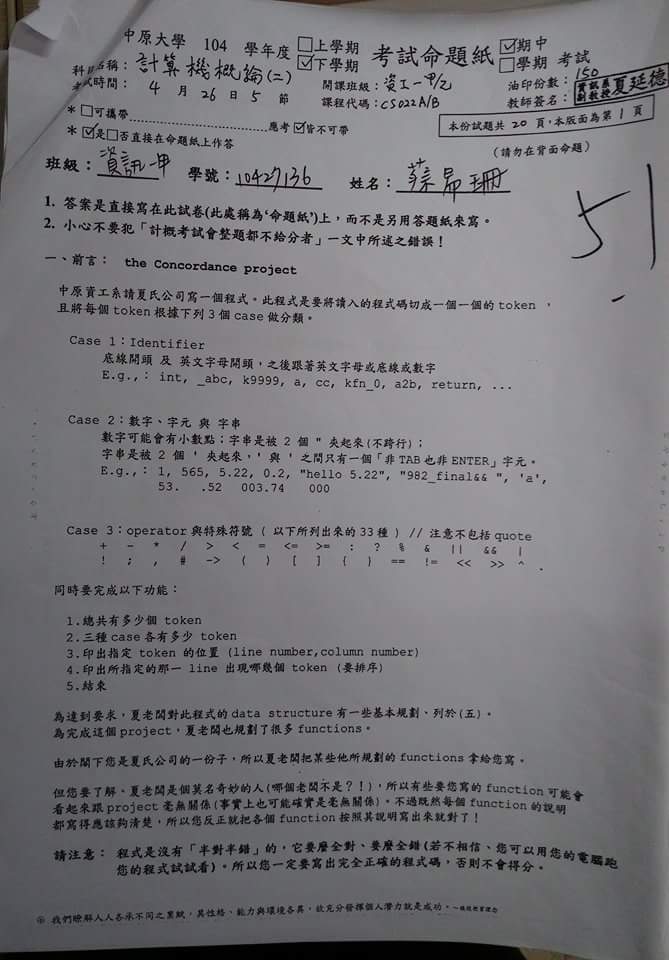 中原大學 104 學年度 □上學期 ☑下學期 考試命題紙 ☑期中 □學期 考試
科目名稱： 計算機概論(二) 開課班級： 資工一甲/乙 油印份數： 150
考試時間： 4 月 26 日 5 節 課程代碼： CS022A/B 教師簽名： 資訊系副教授 夏延德
* □可攜帶 應考 ☑皆不可帶
* ☑是□否直接在命題紙上作答
本份試題共 20 頁，本版面為第 1 頁
(請勿在背面命題)
班級： 資訊一甲 學號： 10427136 姓名： 蔡昂珊
51
1. 答案是直接寫在此試卷(此處稱為'命題紙')上，而不是另用答題紙來寫。
2. 小心不要犯「計概考試會整題都不給分者」一文中所述之錯誤！
一、前言： the Concordance project
中原資工系請夏氏公司寫一個程式。此程式是要將讀入的程式碼切成一個一個的 token ，
且將每個 token 根據下列 3 個 case 做分類。
Case 1：Identifier
底線開頭 及 英文字母開頭，之後跟著英文字母或底線或數字
E.g.,： int, _abc, k9999, a, cc, kfn_0, a2b, return, ...
Case 2：數字、字元 與 字串
數字可能會有小數點；字串是被 2 個 " 夾起來(不跨行)；
字串是被 2 個 ' 夾起來，' 與 ' 之間只有一個「非 TAB 也非 ENTER」字元。
E.g.,： 1, 565, 5.22, 0.2, "hello 5.22", "982_final&& ", 'a',
53. .52 003.74 000
Case 3：operator 與特殊符號 ( 以下所列出來的 33 種 ) // 注意不包括 quote
+ - * / > < = <= >= : ? % & || && |
! ; , # -> ( ) [ ] { } == != << >> ^ .
同時要完成以下功能：
1.總共有多少個 token
2.三種 case 各有多少 token
3.印出指定 token 的位置 (line number,column number)
4.印出所指定的那一 line 出現哪幾個 token (要排序)
5.結束
為達到要求，夏老闆對此程式的 data structure 有一些基本規劃、列於(五)。
為完成這個 project，夏老闆也規劃了很多 functions。
由於閣下您是夏氏公司的一份子，所以夏老闆把某些他所規劃的 functions 拿給您寫。
但您要了解、夏老闆是個莫名奇妙的人(哪個老闆不是？！)，所以有些要您寫的 function 可能會
看起來跟 project 毫無關係(事實上也可能確實是毫無關係)。不過既然每個 function 的說明
都寫得應該夠清楚，所以您反正就把各個 function 按照其說明寫出來就對了！
請注意： 程式是沒有「半對半錯」的，它要麼全對、要麼全錯(若不相信、您可以用您的電腦跑
您的程式試試看)。所以您一定要寫出完全正確的程式碼，否則不會得分。
※ 我們瞭解人人各承不同之稟賦，其性格、能力與環境各異，故充分發揮個人潛力就是成功。